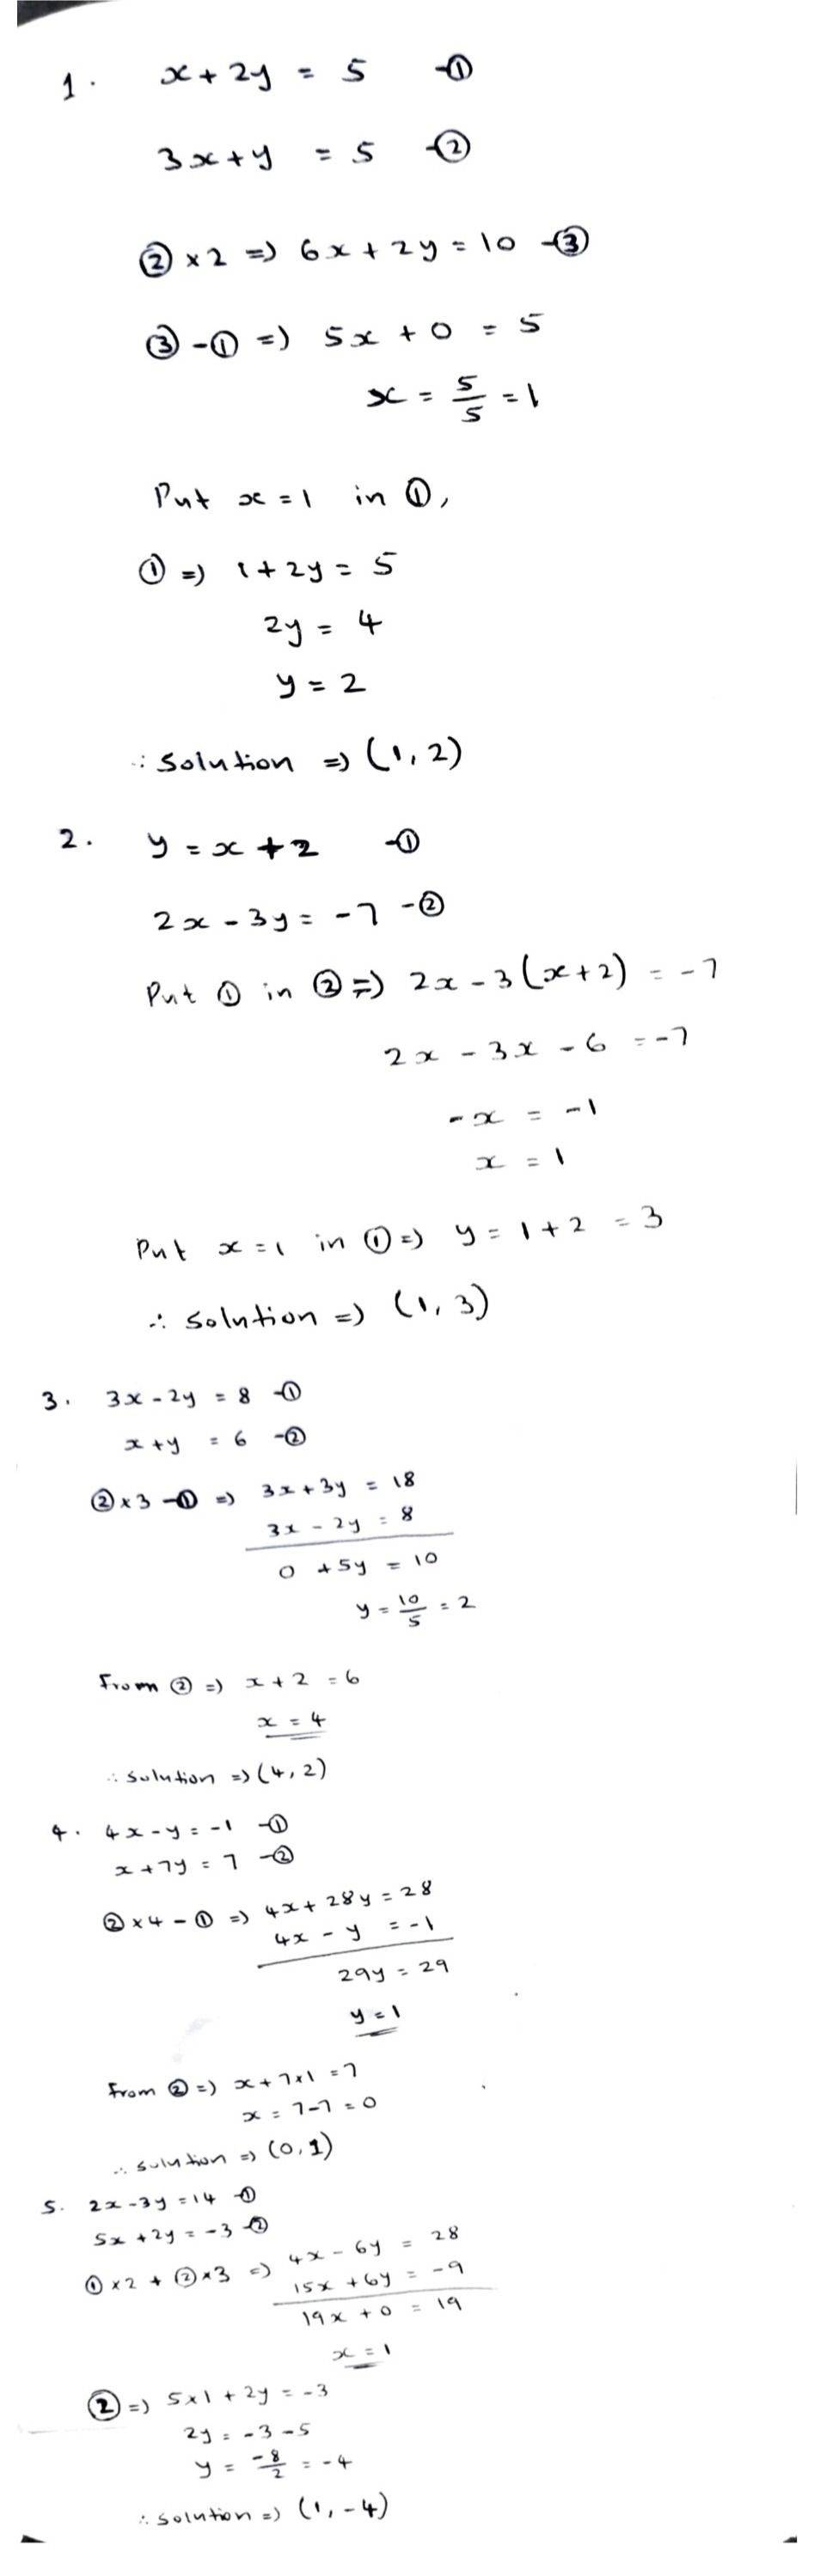 1. x + 2y = 5 -①
3x + y = 5 -②
② × 2 => 6x + 2y = 10 -③
③ - ① => 5x + 0 = 5
x = 5/5 = 1
Put x = 1 in ①,
① => 1 + 2y = 5
2y = 4
y = 2
∴ Solution => (1, 2)
2. y = x + 2 -①
2x - 3y = -7 -②
Put ① in ② => 2x - 3(x+2) = -7
2x - 3x - 6 = -7
-x = -1
x = 1
Put x = 1 in ① => y = 1 + 2 = 3
∴ Solution => (1, 3)
3. 3x - 2y = 8 -①
x + y = 6 -②
② × 3 - ① => 3x + 3y = 18
3x - 2y = 8
0 + 5y = 10
y = 10/5 = 2
From ② => x + 2 = 6
x = 4
∴ Solution => (4, 2)
4. 4x - y = -1 -①
x + 7y = 7 -②
② × 4 - ① => 4x + 28y = 28
4x - y = -1
29y = 29
y = 1
From ② => x + 7×1 = 7
x = 7-7 = 0
∴ Solution => (0, 1)
5. 2x - 3y = 14 -①
5x + 2y = -3 -②
① × 2 + ② × 3 => 4x - 6y = 28
15x + 6y = -9
19x + 0 = 19
x = 1
② => 5×1 + 2y = -3
2y = -3 - 5
y = -8/2 = -4
∴ Solution => (1, -4)